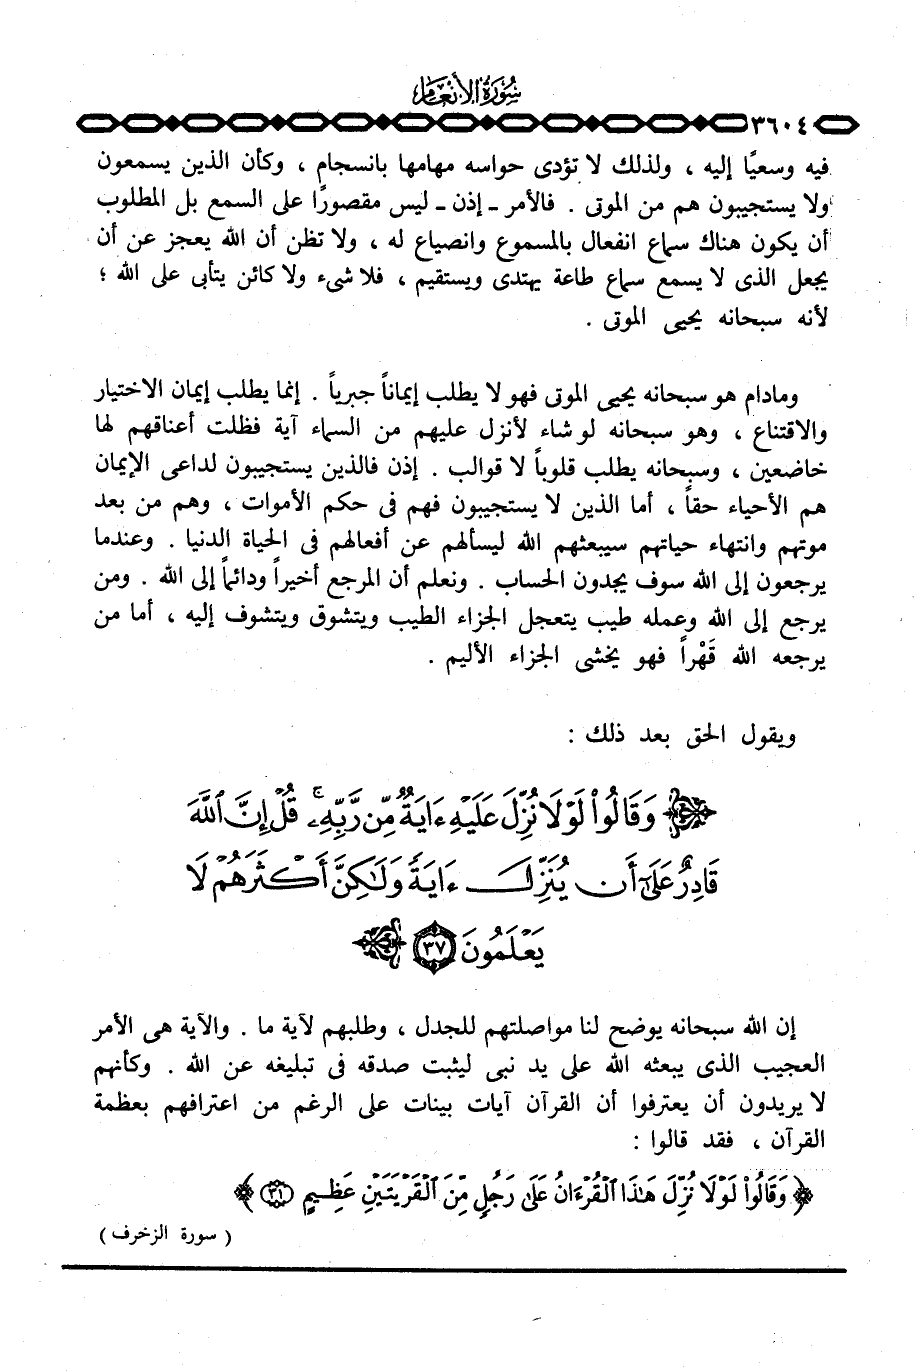 سُورَةُ الأَنْعَام
٣٦٠٤
فيه وسعيًا إليه ، ولذلك لا تؤدى حواسه مهامها بانسجام ، وكأن الذين يسمعون
ولا يستجيبون هم من الموتى . فالأمر ـ إذن ـ ليس مقصورًا على السمع بل المطلوب
أن يكون هناك سماع انفعال بالمسموع وانصياع له ، ولا تظن أن الله يعجز عن أن
يجعل الذى لا يسمع سماع طاعة يهتدى ويستقيم ، فلا شىء ولا كائن يتأبى على الله ؛
لأنه سبحانه يحيى الموتى .
ومادام هو سبحانه يحيى الموتى فهو لا يطلب إيماناً جبرياً . إنما يطلب إيمان الاختيار
والاقتناع ، وهو سبحانه لو شاء لأنزل عليهم من السماء آية فظلت أعناقهم لها
خاضعين ، وسبحانه يطلب قلوباً لا قوالب . إذن فالذين يستجيبون لداعى الإيمان
هم الأحياء حقاً ، أما الذين لا يستجيبون فهم فى حكم الأموات ، وهم من بعد
موتهم وانتهاء حياتهم سيبعثهم الله ليسألهم عن أفعالهم فى الحياة الدنيا . وعندما
يرجعون إلى الله سوف يجدون الحساب . ونعلم أن المرجع أخيراً ودائماً إلى الله . ومن
يرجع إلى الله وعمله طيب يتعجل الجزاء الطيب ويتشوق ويتشوف إليه ، أما من
يرجعه الله قَهْراً فهو يخشى الجزاء الأليم .
ويقول الحق بعد ذلك :
وَقَالُوا۟ لَوْلَا نُزِّلَ عَلَيْهِ ءَايَةٌ مِّن رَّبِّهِۦ ۚ قُلْ إِنَّ ٱللَّهَ
قَادِرٌ عَلَىٰٓ أَن يُنَزِّلَ ءَايَةً وَلَٰكِنَّ أَكْثَرَهُمْ لَا
يَعْلَمُونَ ٣٧
إن الله سبحانه يوضح لنا مواصلتهم للجدل ، وطلبهم لآية ما . والآية هى الأمر
العجيب الذى يبعثه الله على يد نبى ليثبت صدقه فى تبليغه عن الله . وكأنهم
لا يريدون أن يعترفوا أن القرآن آيات بينات على الرغم من اعترافهم بعظمة
القرآن ، فقد قالوا :
﴿ وَقَالُوا۟ لَوْلَا نُزِّلَ هَٰذَا ٱلْقُرْءَانُ عَلَىٰ رَجُلٍ مِّنَ ٱلْقَرْيَتَيْنِ عَظِيمٍ ٣١ ﴾
( سورة الزخرف )